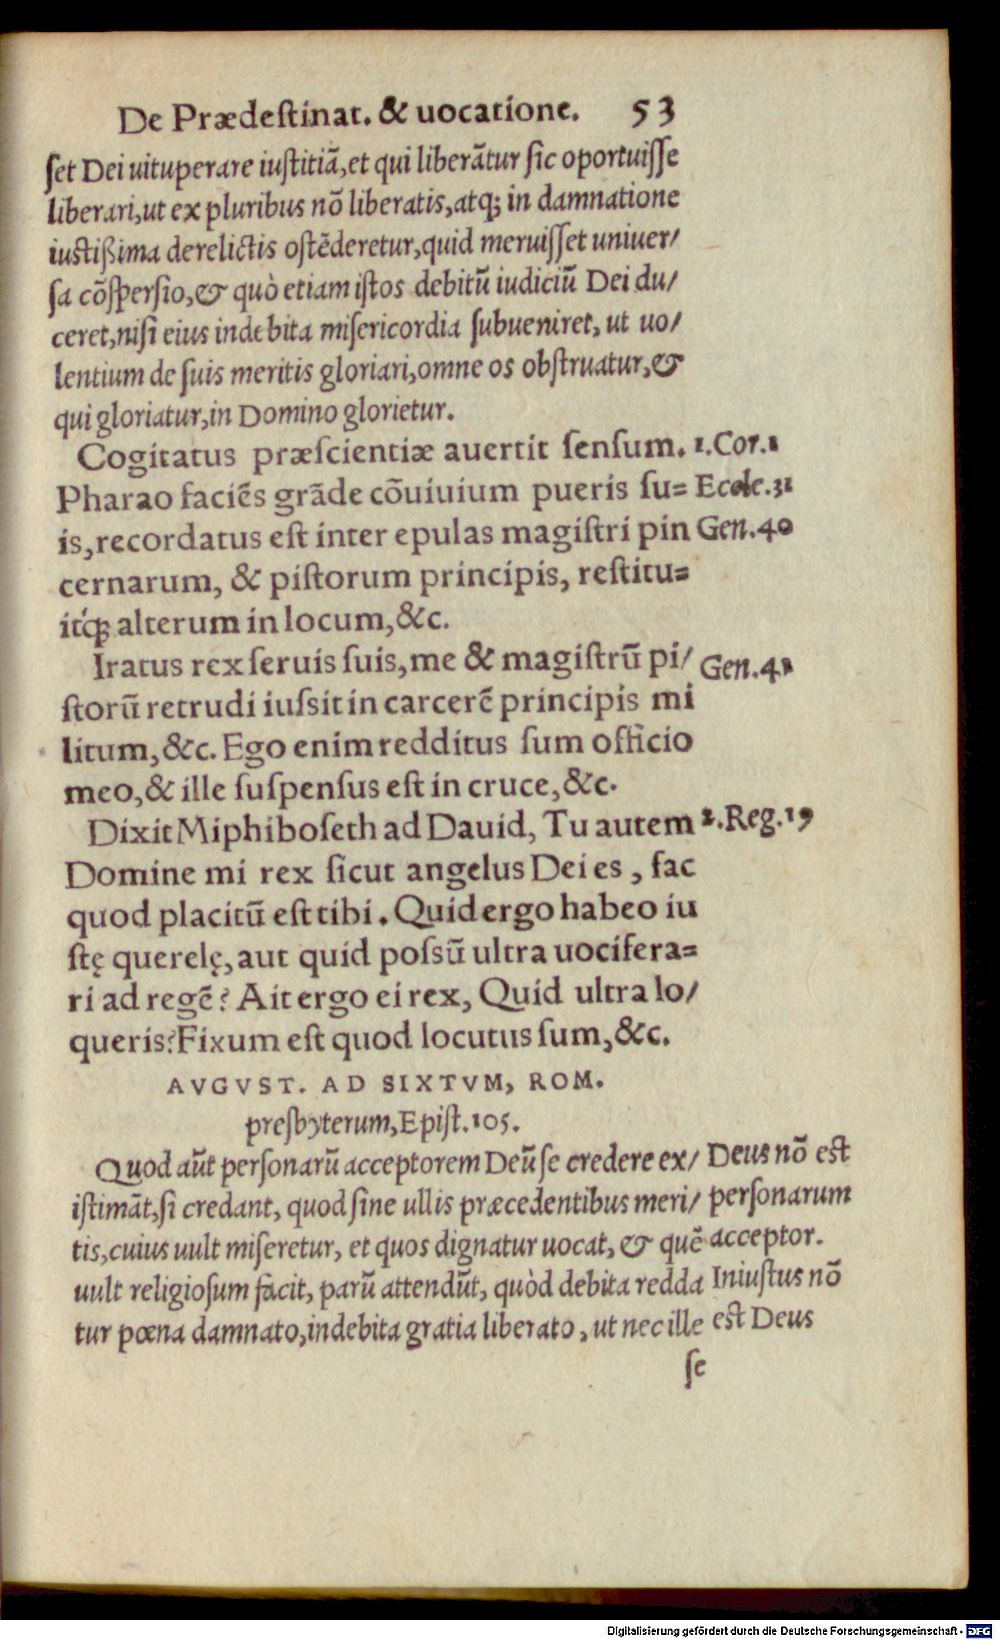 De Prædeſtinat. & uocatione. 53
ſet Dei uituperare iuſtitiā, et qui liberātur ſic oportuiſſe
liberari, ut ex pluribus nō liberatis, atq; in damnatione
iuſtiſſima derelictis oſtēderetur, quid meruiſſet uniuer/
ſa cōſperſio, & quò etiam iſtos debitū iudiciū Dei du/
ceret, niſi eius indebita miſericordia ſubueniret, ut uo/
lentium de ſuis meritis gloriari, omne os obſtruatur, &
qui gloriatur, in Domino glorietur.
Cogitatus præſcientiæ auertit ſenſum. 1.Cor.1
Pharao faciēs grāde cōuiuium pueris ſu= Eccle.31
is, recordatus eſt inter epulas magiſtri pin Gen.40
cernarum, & piſtorum principis, reſtitu=
itq́; alterum in locum, &c.
Iratus rex ſeruis ſuis, me & magiſtrū pi/ Gen.41
ſtorū retrudi iuſsit in carcerē principis mi
litum, &c. Ego enim redditus ſum officio
meo, & ille ſuſpenſus eſt in cruce, &c.
Dixit Miphiboſeth ad Dauid, Tu autem 2.Reg.19
Domine mi rex ſicut angelus Dei es, fac
quod placitū eſt tibi. Quid ergo habeo iu
ſtę querelę, aut quid poſſū ultra uocifera=
ri ad regē? Ait ergo ei rex, Quid ultra lo/
queris? Fixum eſt quod locutus ſum, &c.
AVGVST. AD SIXTVM, ROM.
preſbyterum, Epiſt.105.
Quod aūt perſonarū acceptorem Deū ſe credere ex/ Deus nō eſt
iſtimāt, ſi credant, quod ſine ullis præcedentibus meri/ perſonarum
tis, cuius uult miſeretur, et quos dignatur uocat, & quē acceptor.
uult religioſum facit, parū attendūt, quòd debita redda Iniuſtus nō
tur pœna damnato, indebita gratia liberato, ut nec ille eſt Deus
ſe
Digitalisierung gefördert durch die Deutsche Forschungsgemeinschaft - DFG